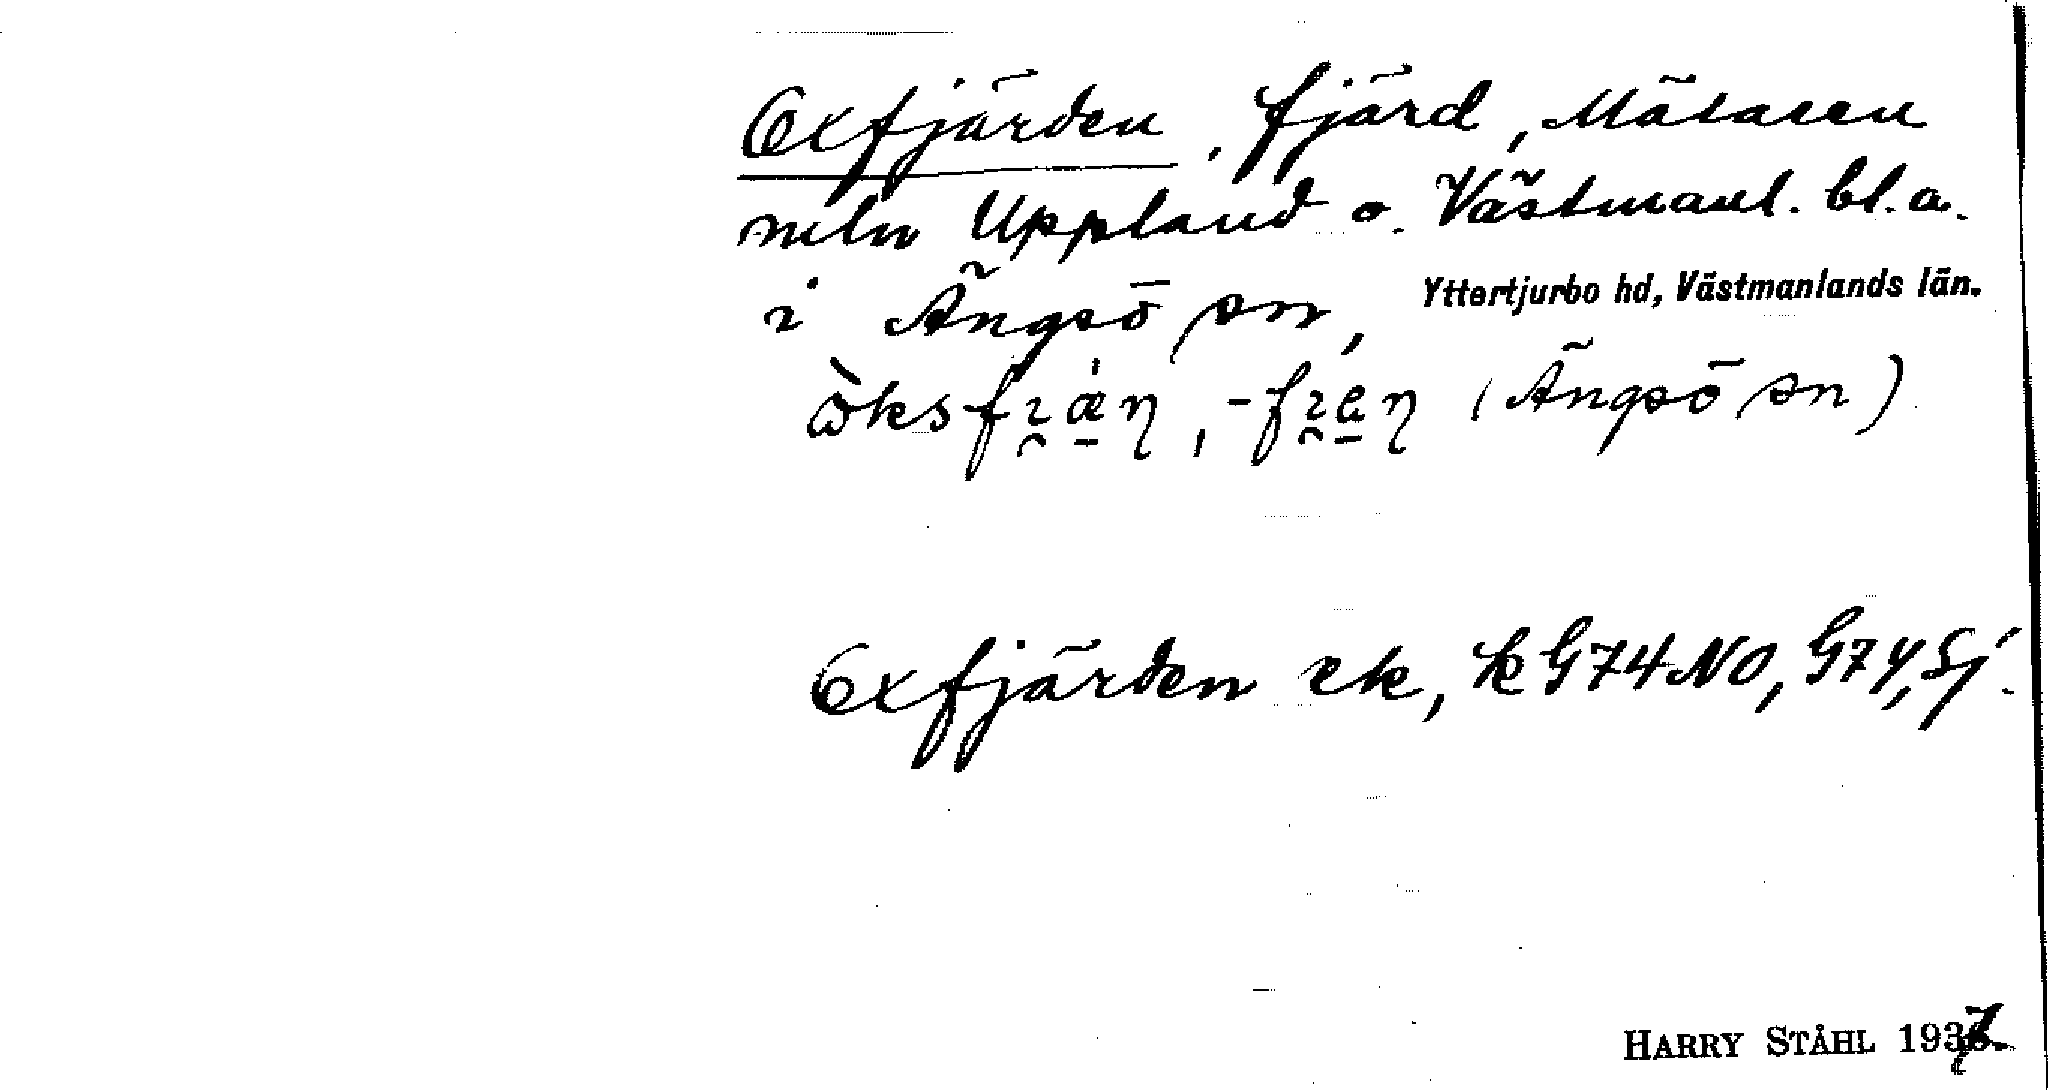 Oxfjärden, fjärd, Mälaren
meln Uppland o. Västmanl. bl.a.
i Ängsö sn, Yttertjurbo hd, Västmanlands län.
(Ängsö sn)
Oxfjärden ek, k G74NO, G74, Sj.
HARRY STÅHL 1937